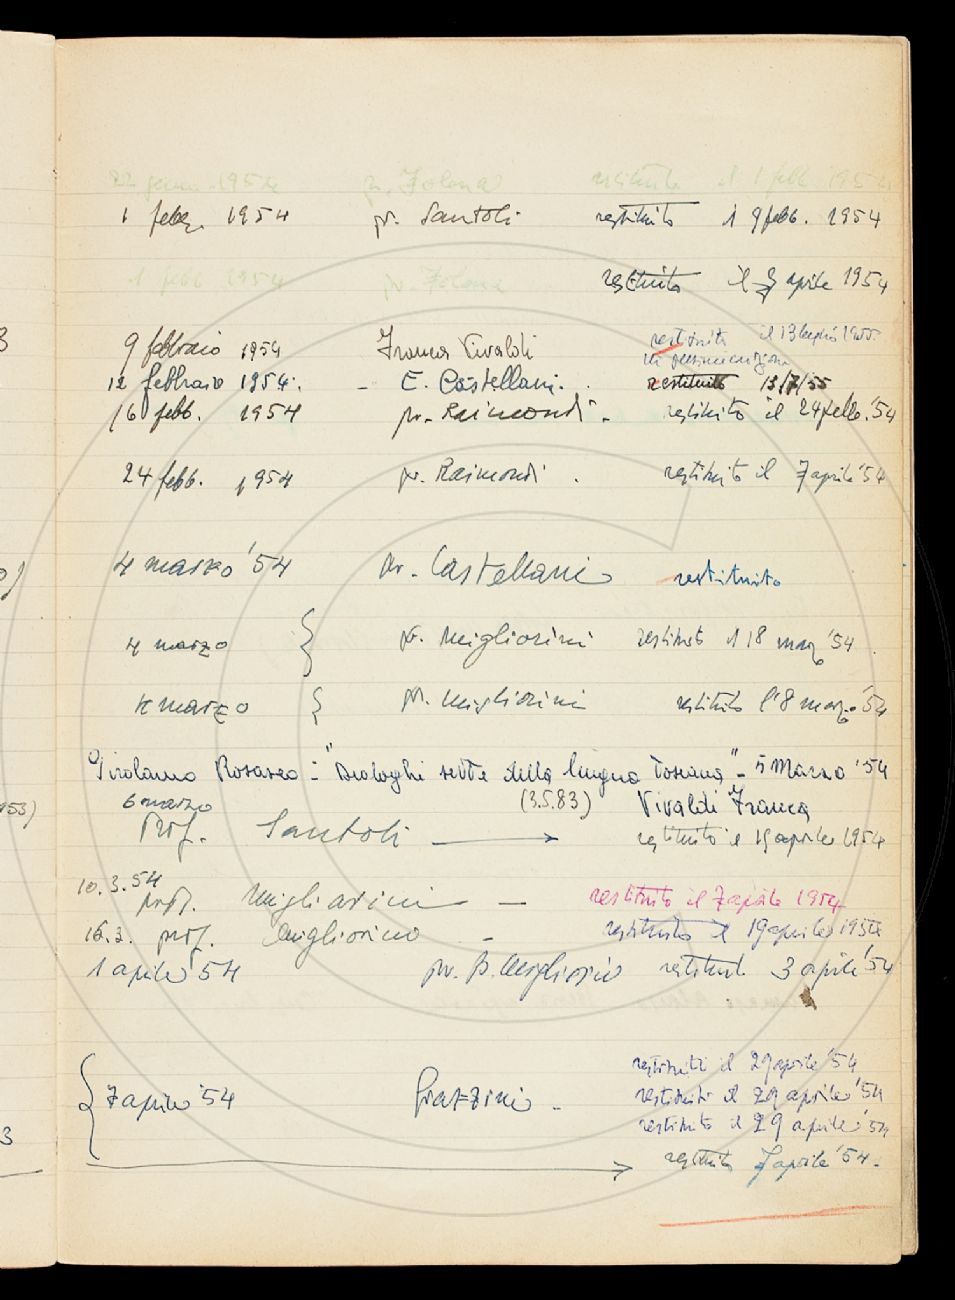 22 genn. 1954 pr. Folena restituito il 1 febb 1954
1 febbr. 1954 pr. Santoli restituito il 9 febb. 1954
1 febb 1954 pr. Folena restituito il 7 aprile 1954
9 febbraio 1954 Franca Vivaldi restituito il 13 luglio 1955
12 febbraio 1954. - E. Castellani. restituito 13/7/55
16 febb. 1954 pr. Raimondi. restituito il 24 febb. '54
24 febb. 1954 pr. Raimondi. restituito il 7 aprile '54
4 marzo '54 pr. Castellani restituito
4 marzo { pr. Migliorini restituito il 18 marzo '54
marzo { pr. Migliorini restituito l'8 marzo '54
Girolamo Rosasco - "Dialoghi sette della lingua toscana" - 5 Marzo '54
6 marzo (3.5.83) Vivaldi Franca
Prof. Santoli restituito il 19 aprile 1954
10.3.54
prof. Migliorini - restituito il 7 aprile 1954
16.3. prof. Migliorino - restituito il 19 aprile 1954
1 aprile '54 pr. B. Migliorini restituito 3 aprile '54
restituiti il 29 aprile '54
{ 7 aprile '54 Grazzini - restituiti il 29 aprile '54
restituito il 29 aprile '54
restituito 7 aprile '54.
53)
3